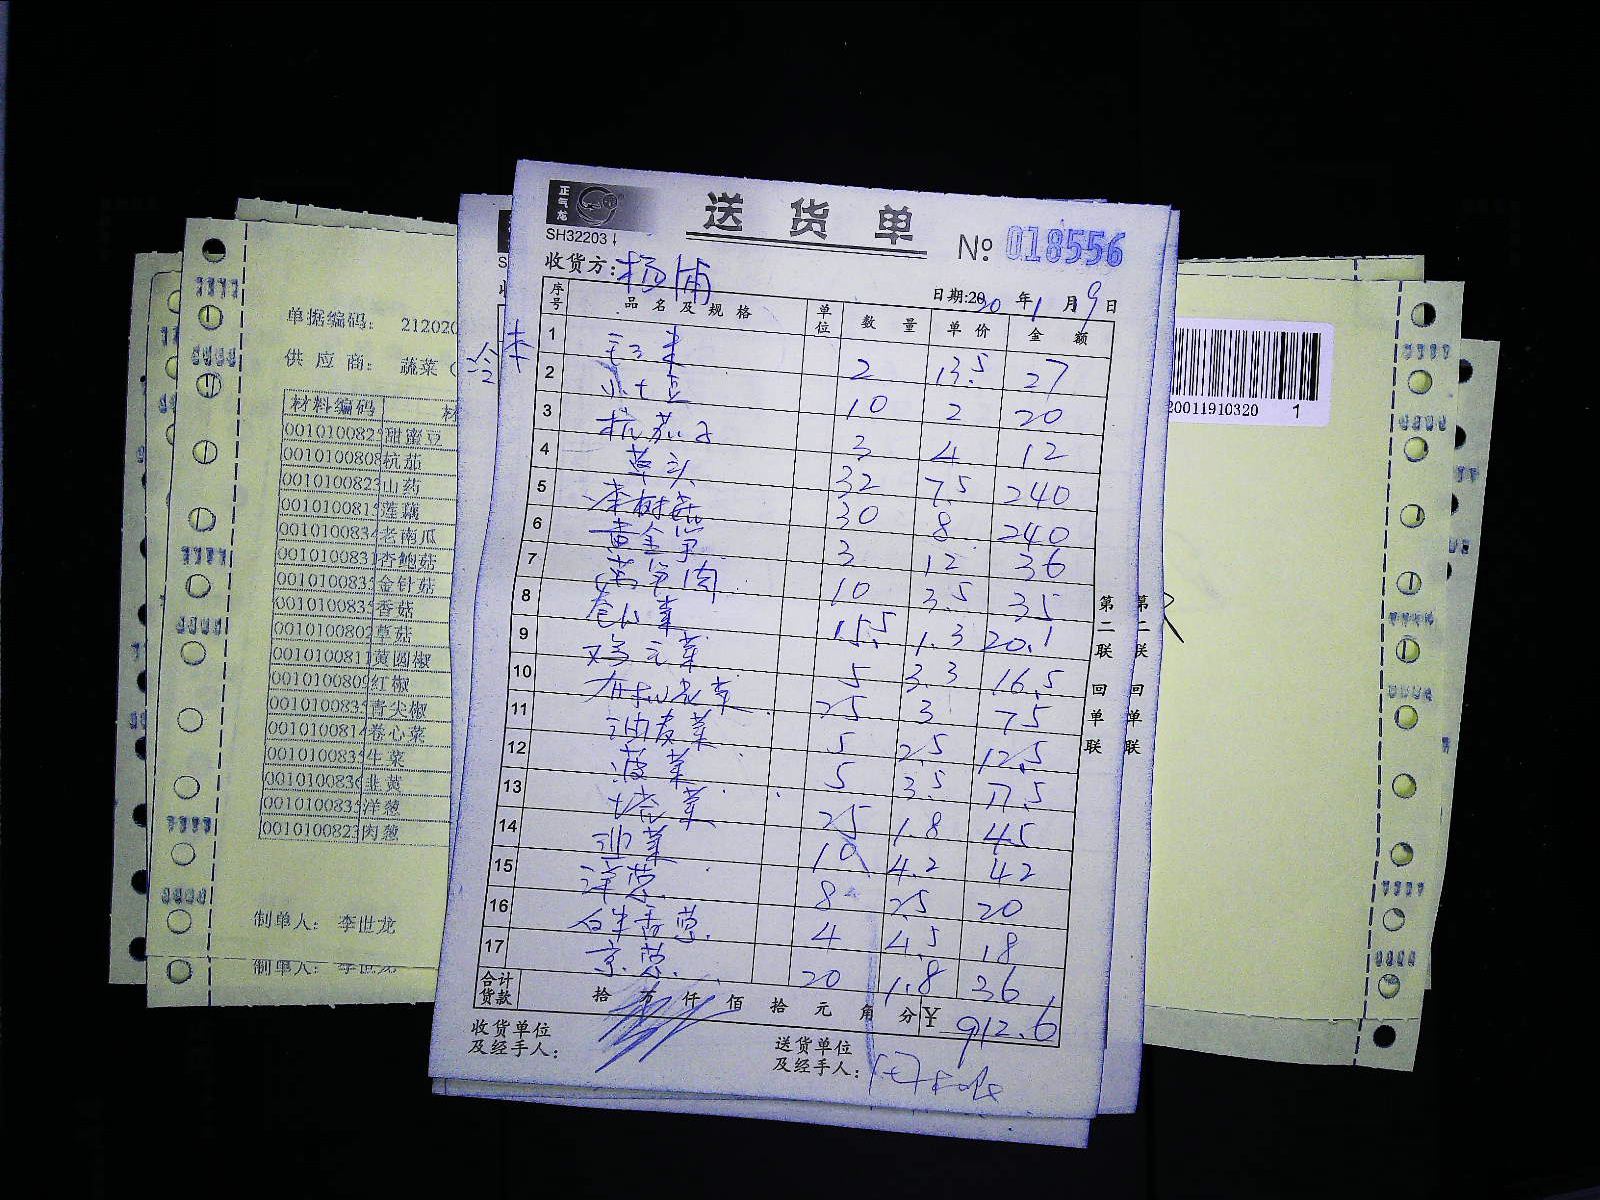 正气龙
SH32203
送货单
№ 018556
收货方: 杨浦
日期:2020年1月9日
序号 品名及规格 单位 数量 单价 金额
1 玉米 2 13.5 27
2 小土豆 10 2 20
3 杭茄子 3 4 12
4 草头 32 7.5 240
5 茶树菇 30 8 240
6 3 12 36
7 莴笋肉 10 3.5 35
8 卷心菜 15.5 1.3 20.1
9 鸡毛菜 5 3.3 16.5
10 有机花菜 25 3 75
11 油麦菜 5 2.5 12.5
12 菠菜 5 3.5 17.5
13 塔菜 25 1.8 45
14 10 4.2 42
15 洋葱 8 2.5 20
16 4 4.5 18
17 京葱 20 1.8 36
合计货款 拾万仟佰拾元角分 ¥ 912.6
收货单位及经手人:
送货单位及经手人:
第二联 回单联
第二联 回单联
单据编码: 212020
供应商: 蔬菜(
材料编码 材
0010100825 甜蜜豆
0010100808 杭茄
0010100823 山药
0010100815 莲藕
0010100834 老南瓜
0010100831 杏鲍菇
0010100835 金针菇
0010100835 香菇
0010100802 草菇
0010100811 黄圆椒
0010100809 红椒
0010100835 青尖椒
0010100814 卷心菜
0010100835 生菜
0010100836 韭黄
0010100835 洋葱
0010100823 肉葱
制单人: 李世龙
制单人: 李世龙
20011910320 1